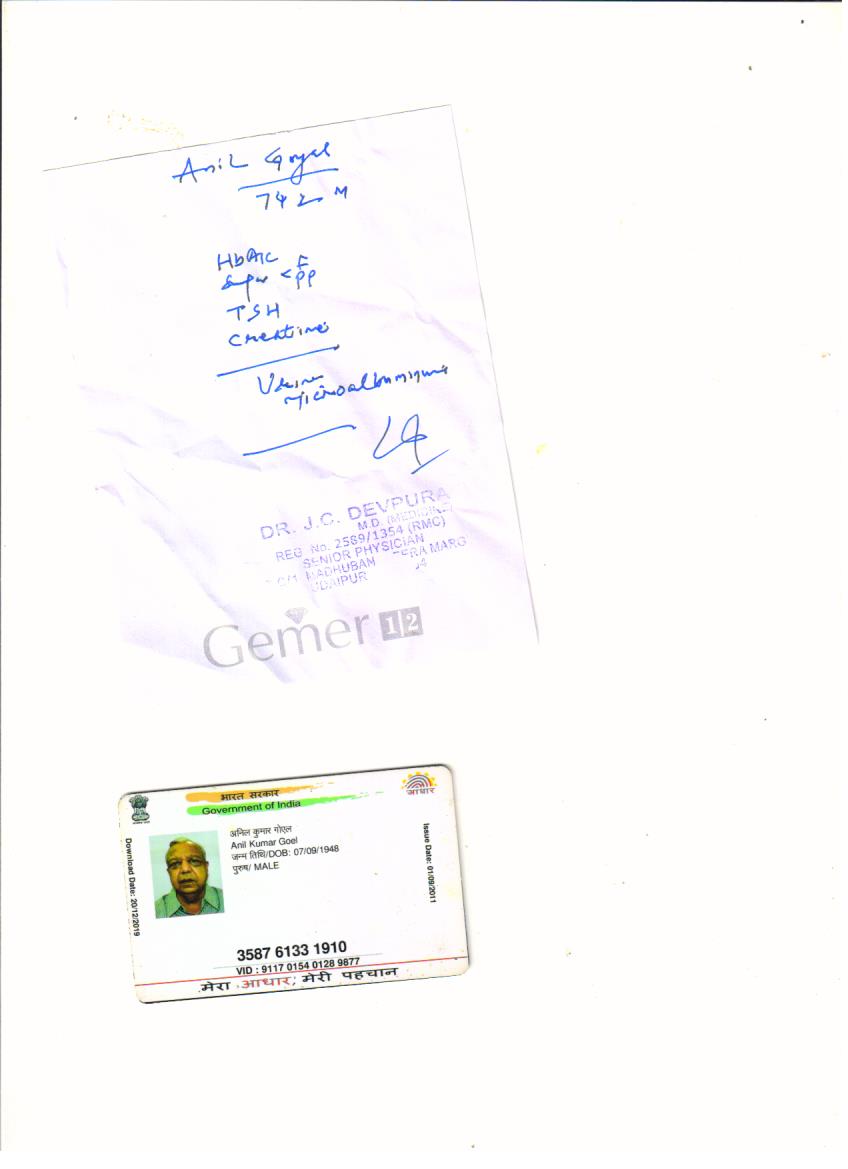 Anil Goyal
74 M
HbA1C
Sugar < F
PP
TSH
Creatinine
Urine
Microalbumin
DR. J.C. DEVPURA
M.D. (MEDICINE)
REG. No. 2589/1354 (RMC)
SENIOR PHYSICIAN
MADHUBAN MARG
UDAIPUR
Gemer 1|2
भारत सरकार
Government of India
आधार
Download Date: 20/12/2019
अनिल कुमार गोएल
Anil Kumar Goel
जन्म तिथि/DOB: 07/09/1948
पुरुष/ MALE
Issue Date: 01/09/2011
3587 6133 1910
VID : 9117 0154 0128 9877
मेरा आधार, मेरी पहचान